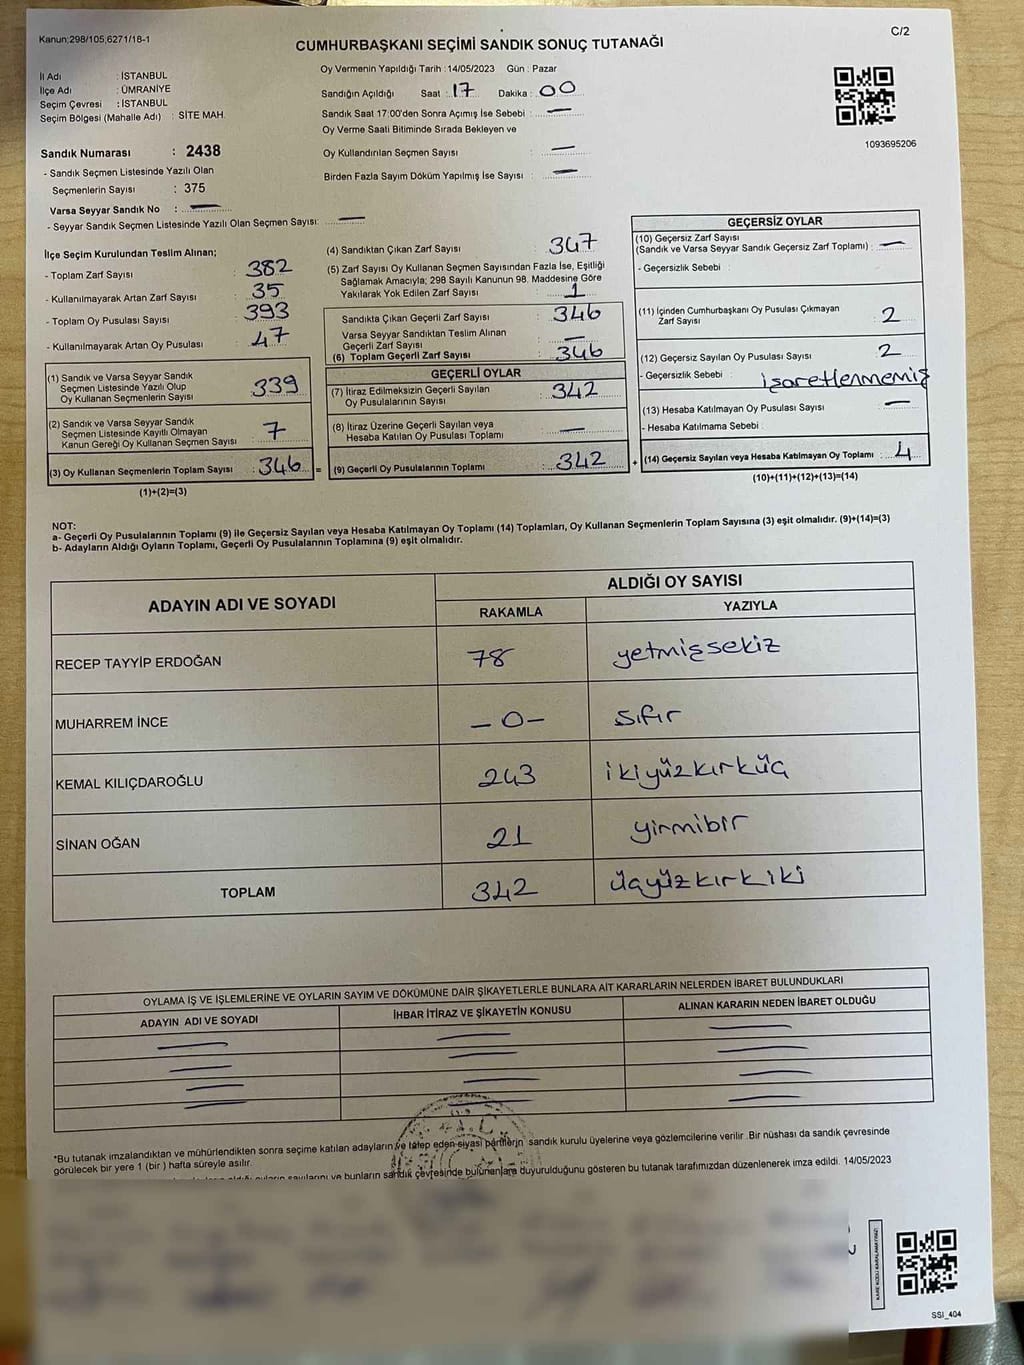 Kanun;298/105,6271/18-1
C/2
CUMHURBAŞKANI SEÇİMİ SANDIK SONUÇ TUTANAĞI
İl Adı : İSTANBUL
İlçe Adı : ÜMRANİYE
Seçim Çevresi : İSTANBUL
Seçim Bölgesi (Mahalle Adı) : SİTE MAH.
Oy Vermenin Yapıldığı Tarih : 14/05/2023 Gün : Pazar
Sandığın Açıldığı Saat : 17 Dakika : 00
Sandık Saat 17:00'den Sonra Açımış İse Sebebi : —
Oy Verme Saati Bitiminde Sırada Bekleyen ve
Oy Kullandırılan Seçmen Sayısı : —
Birden Fazla Sayım Döküm Yapılmış İse Sayısı : —
1093695206
Sandık Numarası : 2438
- Sandık Seçmen Listesinde Yazılı Olan
Seçmenlerin Sayısı : 375
Varsa Seyyar Sandık No : —
- Seyyar Sandık Seçmen Listesinde Yazılı Olan Seçmen Sayısı: —
İlçe Seçim Kurulundan Teslim Alınan;
- Toplam Zarf Sayısı : 382
- Kullanılmayarak Artan Zarf Sayısı : 35
- Toplam Oy Pusulası Sayısı : 393
- Kullanılmayarak Artan Oy Pusulası : 47
(1) Sandık ve Varsa Seyyar Sandık
Seçmen Listesinde Yazılı Olup
Oy Kullanan Seçmenlerin Sayısı : 339
(2) Sandık ve Varsa Seyyar Sandık
Seçmen Listesinde Kayıtlı Olmayan
Kanun Gereği Oy Kullanan Seçmen Sayısı : 7
(3) Oy Kullanan Seçmenlerin Toplam Sayısı : 346 =
(1)+(2)=(3)
(4) Sandıktan Çıkan Zarf Sayısı : 347
(5) Zarf Sayısı Oy Kullanan Seçmen Sayısından Fazla İse, Eşitliği
Sağlamak Amacıyla; 298 Sayılı Kanunun 98. Maddesine Göre
Yakılarak Yok Edilen Zarf Sayısı : 1
Sandıkta Çıkan Geçerli Zarf Sayısı : 346
Varsa Seyyar Sandıktan Teslim Alınan
Geçerli Zarf Sayısı : —
(6) Toplam Geçerli Zarf Sayısı : 346
GEÇERLİ OYLAR
(7) İtiraz Edilmeksizin Geçerli Sayılan
Oy Pusulalarının Sayısı : 342
(8) İtiraz Üzerine Geçerli Sayılan veya
Hesaba Katılan Oy Pusulası Toplamı : —
(9) Geçerli Oy Pusulalarının Toplamı : 342 +
GEÇERSİZ OYLAR
(10) Geçersiz Zarf Sayısı
(Sandık ve Varsa Seyyar Sandık Geçersiz Zarf Toplamı) : —
- Geçersizlik Sebebi :
(11) İçinden Cumhurbaşkanı Oy Pusulası Çıkmayan
Zarf Sayısı : 2
(12) Geçersiz Sayılan Oy Pusulası Sayısı : 2
- Geçersizlik Sebebi : işaretlenmemiş
(13) Hesaba Katılmayan Oy Pusulası Sayısı : —
- Hesaba Katılmama Sebebi :
(14) Geçersiz Sayılan veya Hesaba Katılmayan Oy Toplamı : 4
(10)+(11)+(12)+(13)=(14)
NOT:
a- Geçerli Oy Pusulalarının Toplamı (9) ile Geçersiz Sayılan veya Hesaba Katılmayan Oy Toplamı (14) Toplamları, Oy Kullanan Seçmenlerin Toplam Sayısına (3) eşit olmalıdır. (9)+(14)=(3)
b- Adayların Aldığı Oyların Toplamı, Geçerli Oy Pusulalarının Toplamına (9) eşit olmalıdır.
ADAYIN ADI VE SOYADI
ALDIĞI OY SAYISI
RAKAMLA YAZIYLA
RECEP TAYYİP ERDOĞAN 78 yetmişsekiz
MUHARREM İNCE -0- sıfır
KEMAL KILIÇDAROĞLU 243 ikiyüzkırküç
SİNAN OĞAN 21 yirmibir
TOPLAM 342 üçyüzkırkiki
OYLAMA İŞ VE İŞLEMLERİNE VE OYLARIN SAYIM VE DÖKÜMÜNE DAİR ŞİKAYETLERLE BUNLARA AİT KARARLARIN NELERDEN İBARET BULUNDUKLARI
ADAYIN ADI VE SOYADI İHBAR İTİRAZ VE ŞİKAYETİN KONUSU ALINAN KARARIN NEDEN İBARET OLDUĞU
T.C.
*Bu tutanak imzalandıktan ve mühürlendikten sonra seçime katılan adayların ve talep eden siyasi partilerin sandık kurulu üyelerine veya gözlemcilerine verilir .Bir nüshası da sandık çevresinde
görülecek bir yere 1 (bir ) hafta süreyle asılır.
oyların sayılarını ve bunların sandık çevresinde bulunanlara duyurulduğunu gösteren bu tutanak tarafımızdan düzenlenerek imza edildi. 14/05/2023
KARE KODU KARALAMAYINIZ!
SSI_404